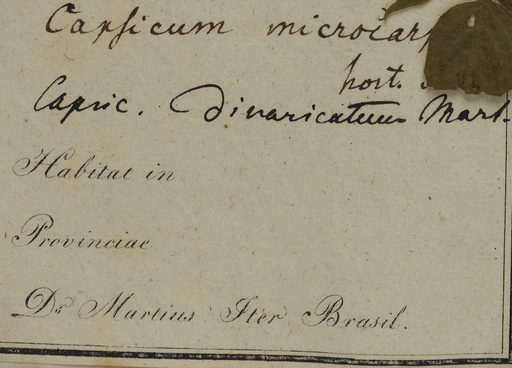 Capsicum microcarp
hort.
Capsic. divaricatum Mart.
Habitat in
Provinciae
Dr Martius Iter Brasil.